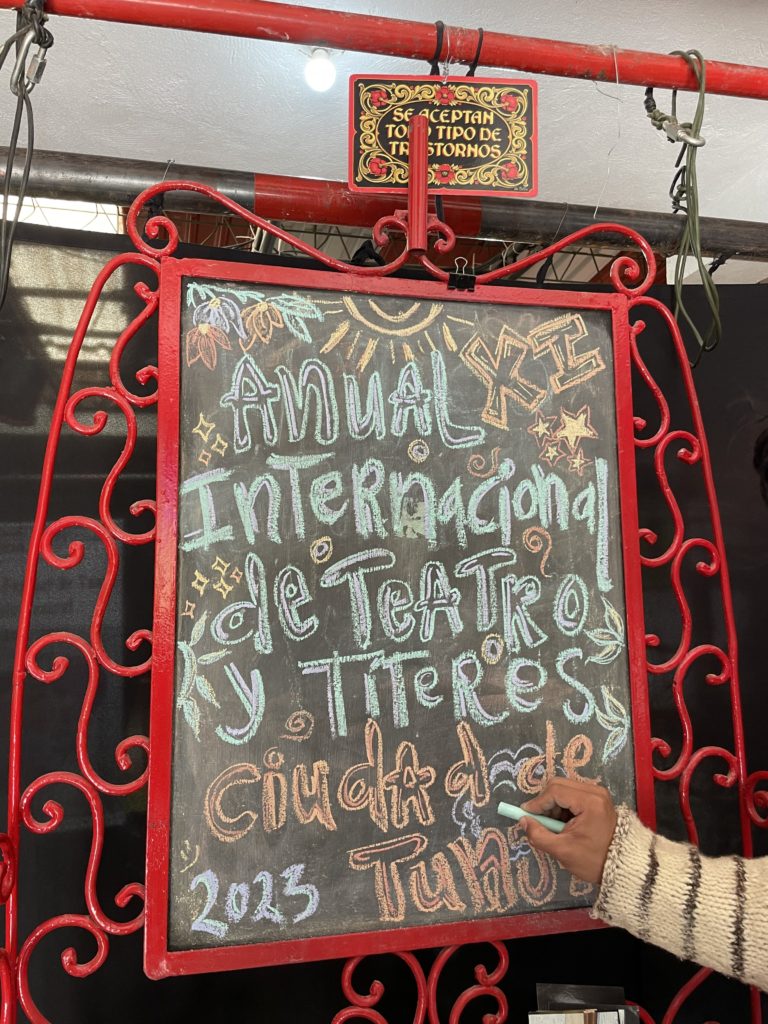 SE ACEPTAN
TODO TIPO DE
TRASTORNOS
XI
ANUAL
INTERNAcional
de TeATRO
y TÍTeRES
Ciudad de
Tunja
2023